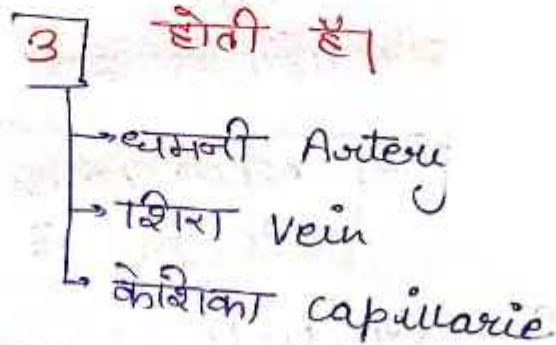 3 होती है।
धमनी Artery
शिरा vein
केशिका capillarie